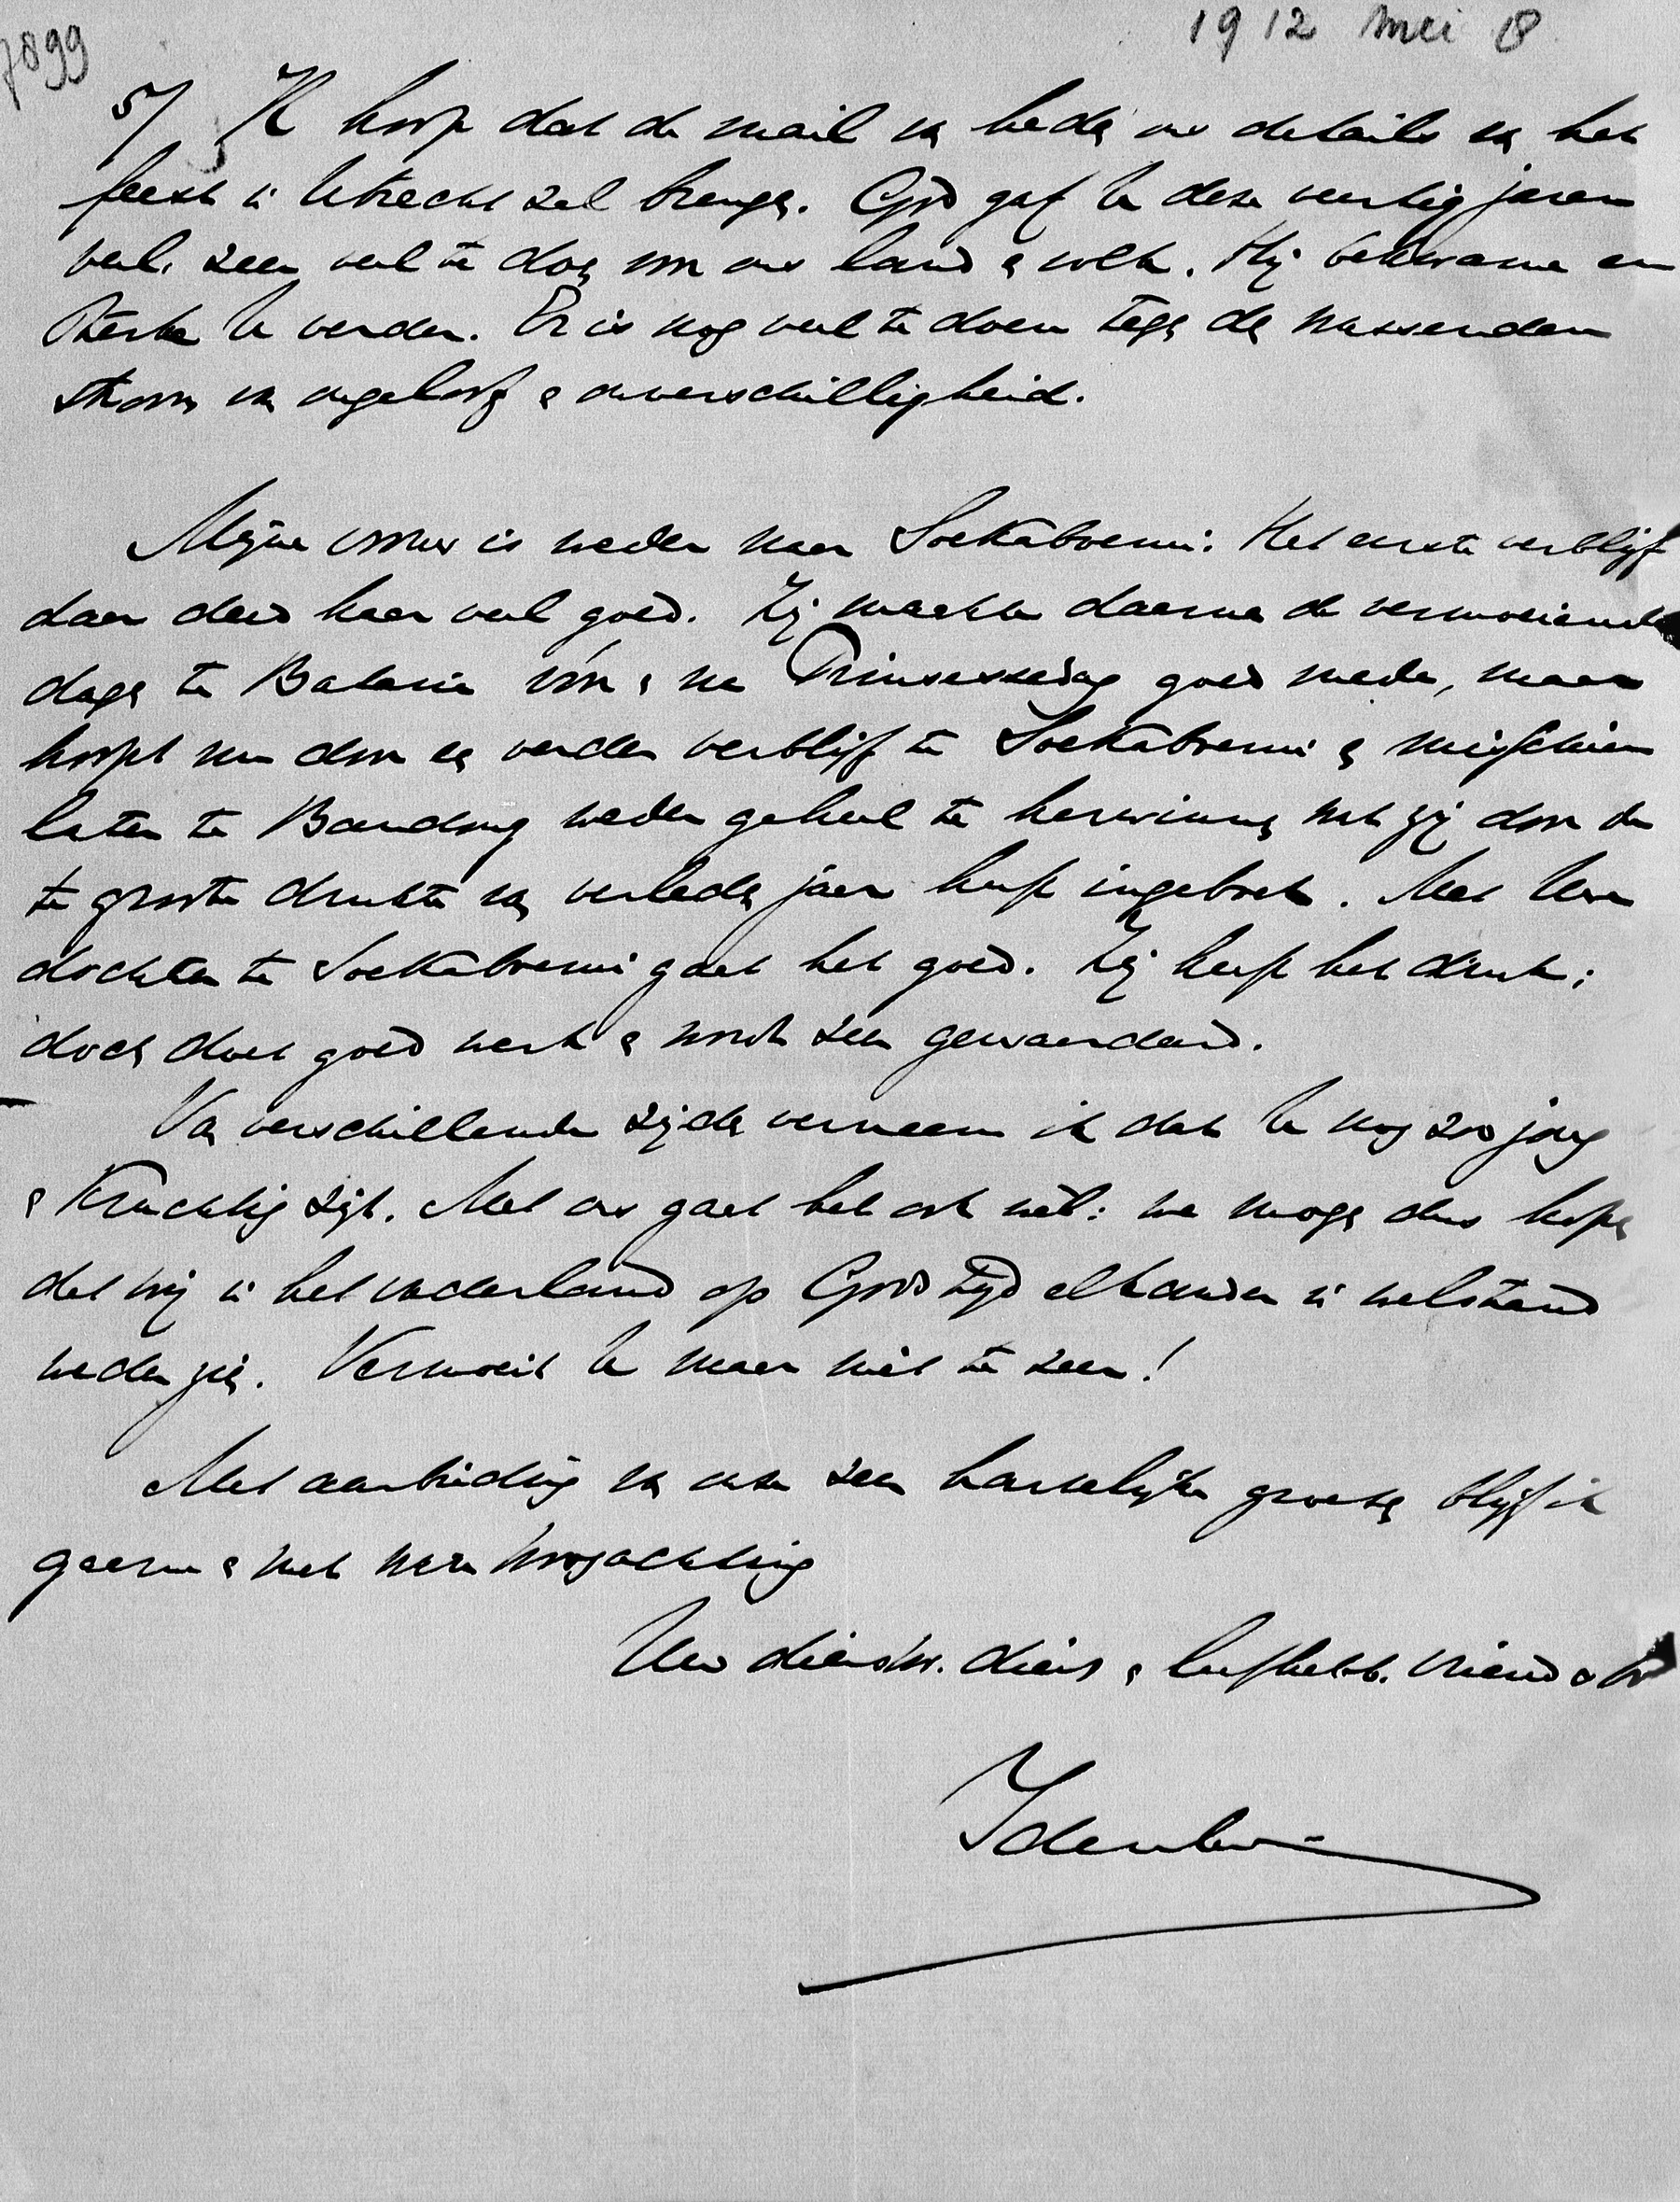 7899
1912 mei 18
5/ Ik hoop dat de mail van heden ons details van het
feest in Utrecht zal brengen. God gaf U deze veertig jaren
veel, zeer veel te doen voor ons land en volk. Hij bekwame en
sterke U verder. Er is nog veel te doen tegen den wassenden
stroom van ongeloof en onverschilligheid.
Mijne vrouw is weder naar Soekaboemi. Het eerste verblijf
daar deed haar veel goed. Zij maakte daarna de vermoeiende
dagen te Batavia vóór en na Prinsessedag goed mede, maar
hoopt nu door een verder verblijf te Soekaboemi en misschien
later te Bandoeng weder geheel te herwinnen wat zij door de
te groote drukte van verleden jaar heeft ingeboet. Met Uwe
dochter te Soekaboemi gaat het goed. Zij heeft het druk;
doch doet goed werk en wordt zeer gewaardeerd.
Van verschillende zijden verneem ik dat U nog zoo jong
en krachtig zijt. Met ons gaat het ook wèl: we mogen dus hopen
dat wij in het vaderland op Gods tijd elkander in welstand
weder zien. Vermoeit U maar niet te zeer!
Met aanbieding van onze zeer hartelijke groeten blijf ik
gaarne en met ware hoogachting
Uw dienstw. dien. en liefhebb. vriend & br
Idenburg